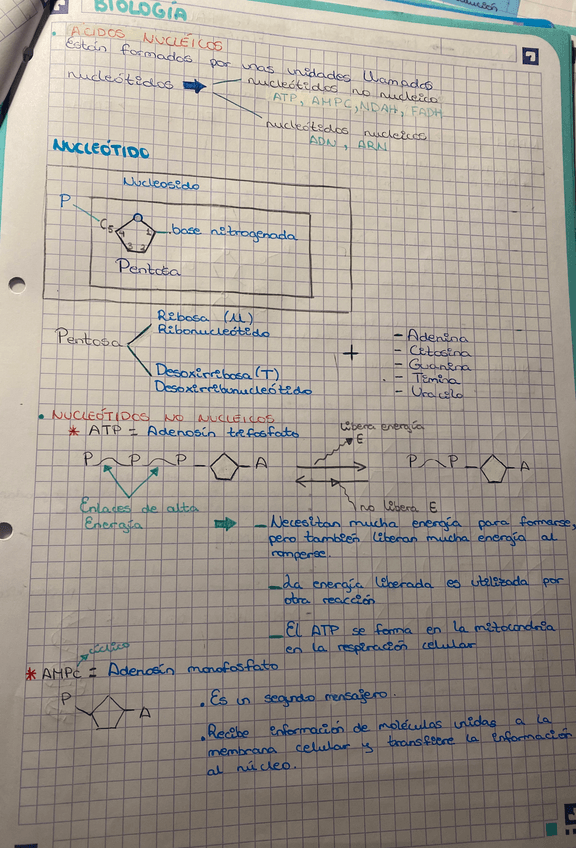 BIOLOGÍA
• ÁCIDOS NUCLÉICOS
están formados por unas unidades llamadas
nucleótidos
nucleótidos no nucleico
ATP, AMPC, NDAH, FADH
nucleótidos nucleicos
ADN, ARN
NUCLEÓTIDO
Nucleosido
P
C5 4 1 base nitrogenada
3 2
Pentosa
Pentosa
Ribosa (U)
Ribonucleótido
Desoxirribosa (T)
Desoxirribonucleótido
+
- Adenina
- Citosina
- Guanina
- Timina
- Uracilo
• NUCLEÓTIDOS NO NUCLEICOS
* ATP = Adenosín trifosfato
libera energía
E
P P P A
P P A
no libera E
Enlaces de alta
Energía
- Necesitan mucha energía para formarse,
pero también liberan mucha energía al
romperse.
- La energía liberada es utilizada por
otra reacción
- El ATP se forma en la mitocondria
en la respiración celular
cíclico
* AMPC = Adenosín monofosfato
P A
. Es un segundo mensajero.
. Recibe información de moléculas unidas a la
membrana celular y transfiere la información
al núcleo.